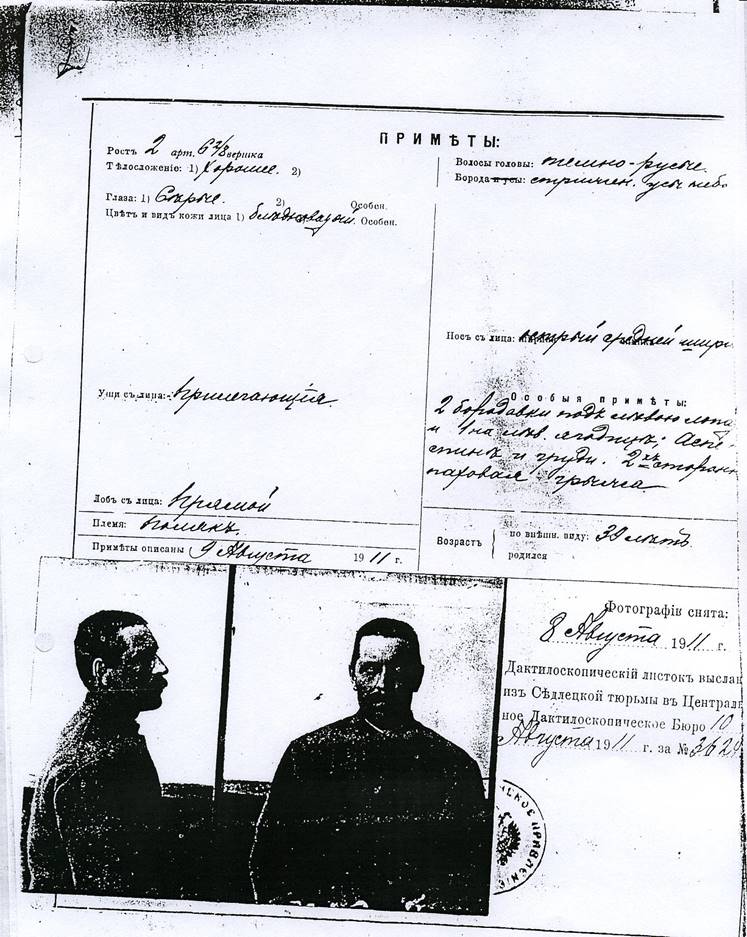 ПРИМѢТЫ:
Ростъ 2 арт. 6 2/8 вершка
Тѣлосложеніе: 1) Хорошее. 2)
Глаза: 1) Сѣрые. 2) Особен.
Цвѣтъ и видъ кожи лица 1) Особен.
Уши съ лица: прилегающія
Лобъ съ лица: прямой
Племя: полякъ
Примѣты описаны 9 Августа 1911 г.
Волосы головы: темно-русые.
Борода и усы: стрижен. усы
Носъ съ лица: острый средней шир
Особыя примѣты:
2 бородавки подъ лѣвою лопа
и 1 на лѣв. ягодицѣ;
и груди. 2хъ сторон
паховая грыжа
Возрастъ по внѣшн. виду: 39 лѣтъ
родился
Фотографія снята:
8 Августа 1911 г.
Дактилоскопическій листокъ выслан
изъ Сѣдлецкой тюрьмы въ Централь
ное Дактилоскопическое Бюро 10
Августа 1911 г. за № 3629
СКОЕ ПРАВЛЕНІЕ